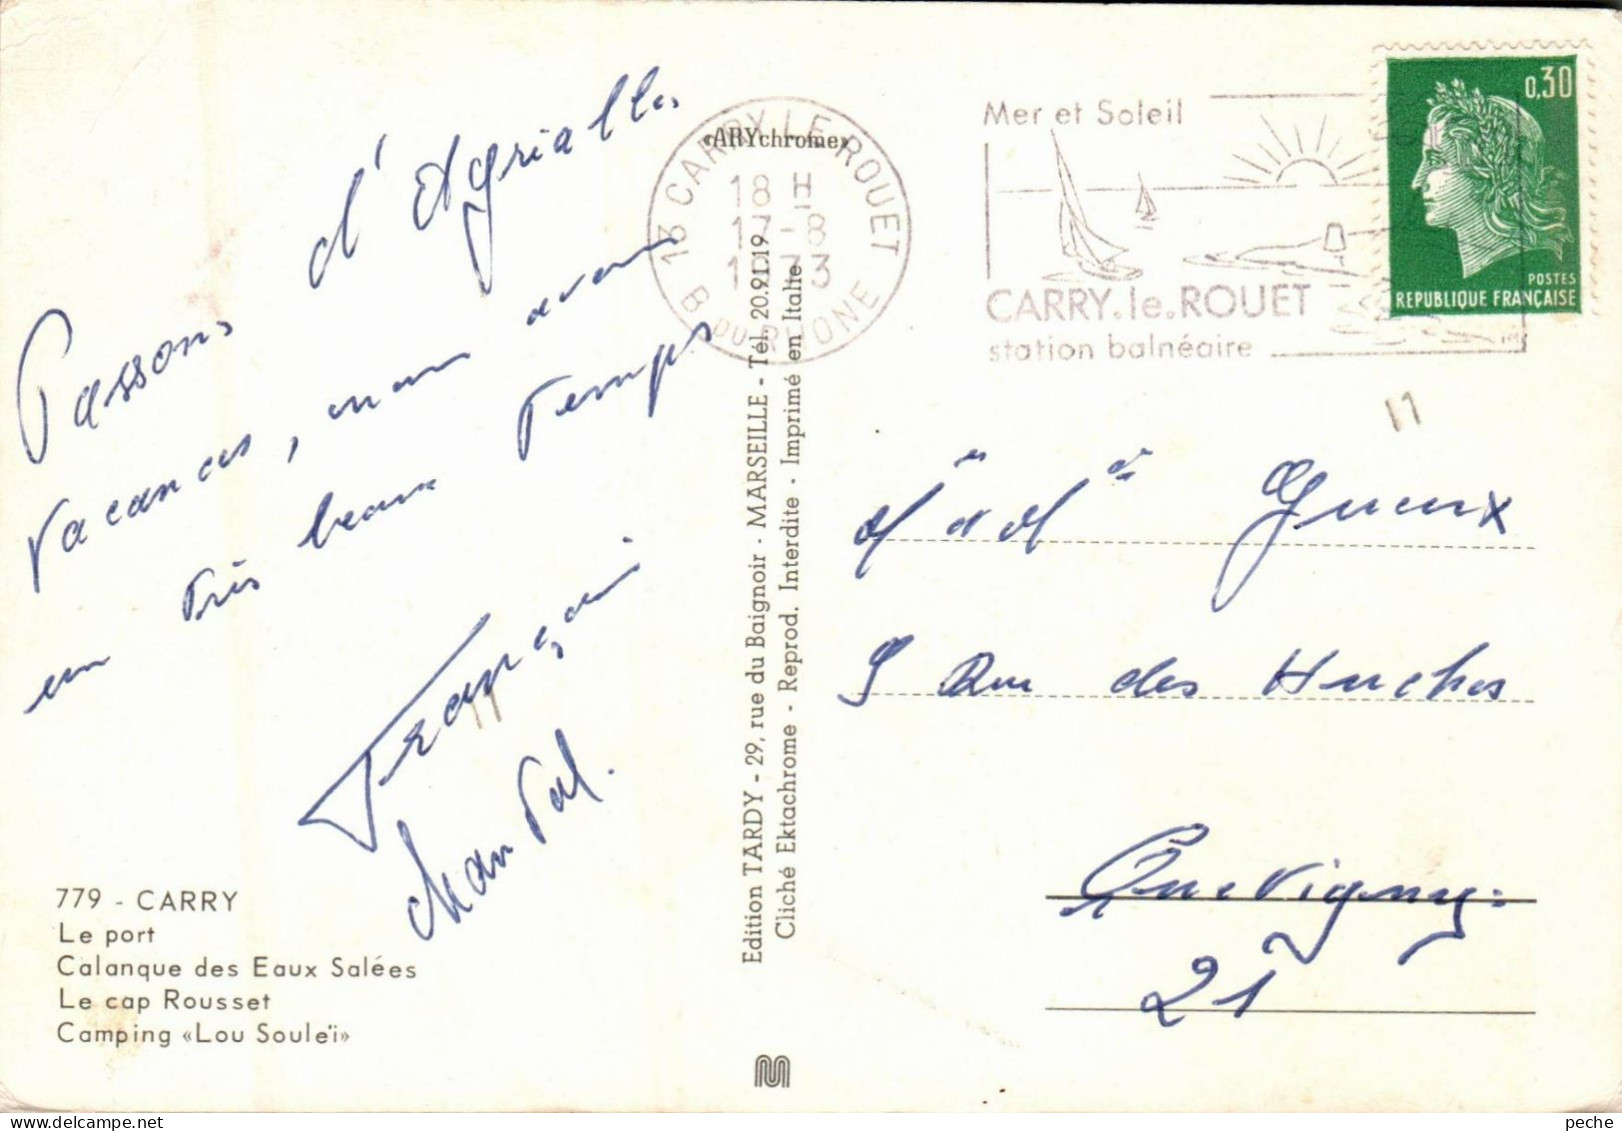 Passons d'Agréables
vacances, nous avons
un très beau temps
Françoise
Chantal.
779 - CARRY
Le port
Calanque des Eaux Salées
Le cap Rousset
Camping «Lou Souleï»
«ARYchrome»
Edition TARDY - 29, rue du Baignoir - MARSEILLE - Tél. 20.91.19
Cliché Ektachrome - Reprod. Interdite - Imprimé en Italie
13 CARRY LE ROUET
18 H
17-8
1973
B. DU RHONE
Mer et Soleil
CARRY.le.ROUET
station balnéaire
0,30
POSTES
REPUBLIQUE FRANÇAISE
11
Mr et Me Gueux
9 Rue des Huches
Quetigny
21
peche